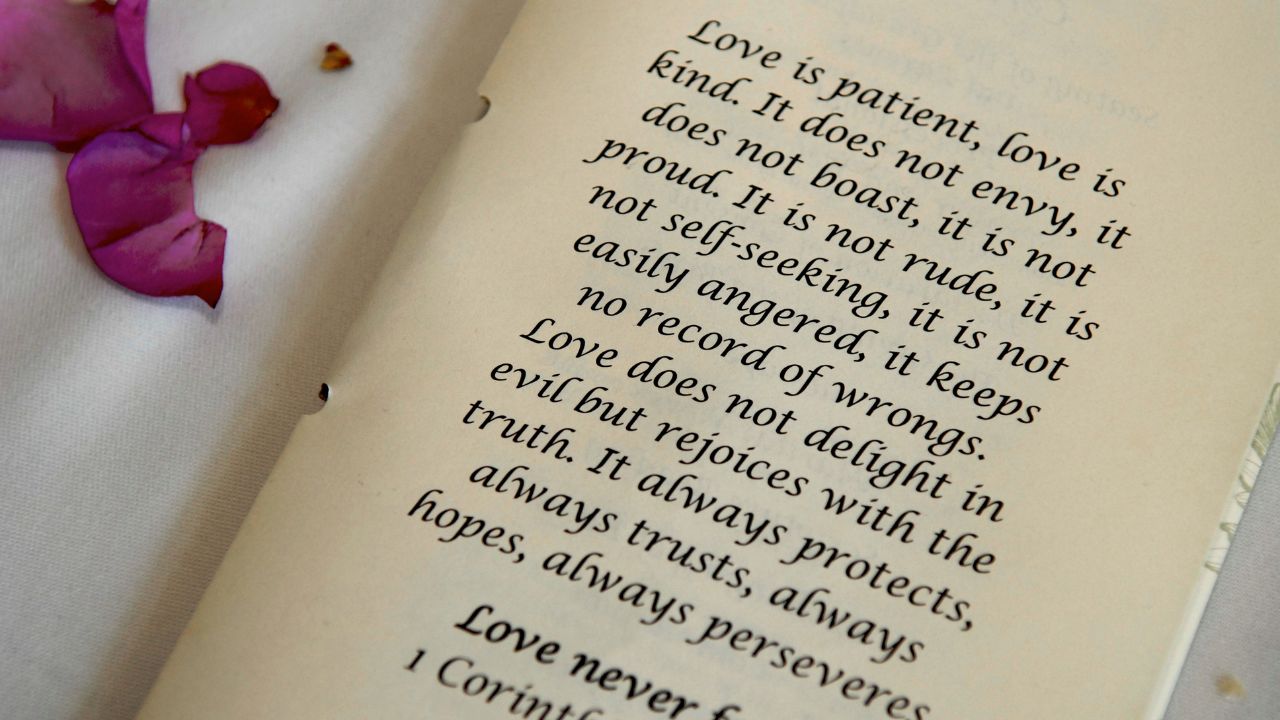 Love is patient, love is
kind. It does not envy, it
does not boast, it is not
proud. It is not rude, it is
not self-seeking, it is not
easily angered, it keeps
no record of wrongs.
Love does not delight in
evil but rejoices with the
truth. It always protects,
always trusts, always
hopes, always perseveres
Love never
1